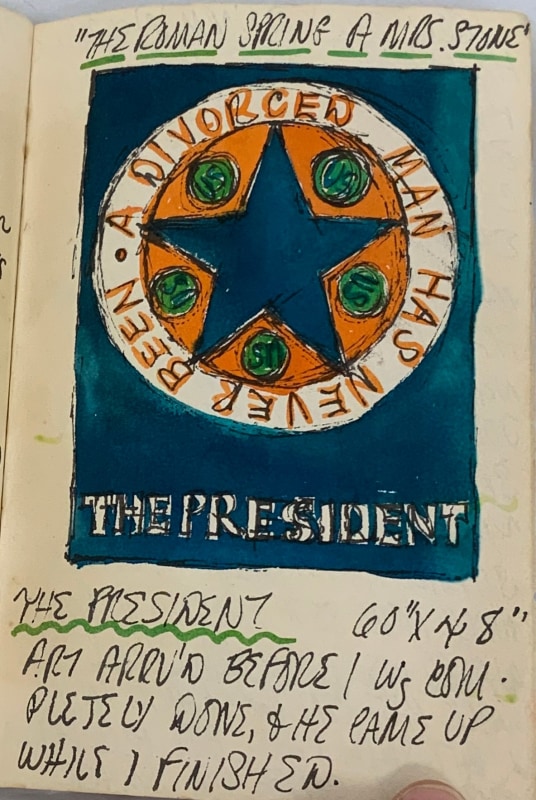 "THE ROMAN SPRING A MRS. STONE"
A DIVORCED MAN HAS NEVER BEEN •
US
US
US
US
US
THE PRESIDENT
THE PRESIDENT 60" X 48"
ART ARRV'D BEFORE I WS COM-
PLETELY DONE, & HE CAME UP
WHILE I FINISHED.